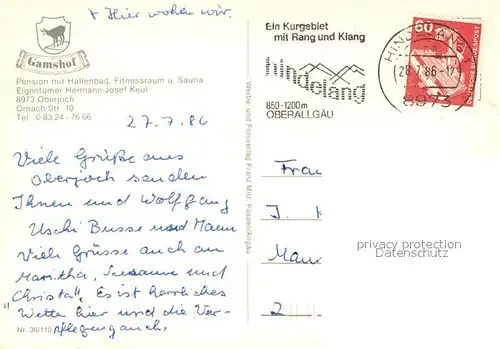 + Hier wohnen wir.
Gamshof
Pension mit Hallenbad, Fitnessraum u. Sauna
Eigentümer Hermann-Josef Keul
8973 Oberjoch
Ornach-Str. 10
Tel. 0 83 24 - 76 66
27.7.86
Viele Grüße aus
Oberjoch senden
Ihnen und Wolfgang
Uschi Busse und Mann
Viele Grüsse auch an
Maritha, Susanne und
Christa". Es ist herrliches
"Wetter hier und die Ver-
pflegung auch.
Nr. 36/110
Werbe- und Fotoverlag Franz Milz, Füssen/Allgäu
Ein Kurgebiet
mit Rang und Klang
hindelang
850-1200m
OBERALLGÄU
HINDELANG
28.7.86-17
8973
60
DEUTSCHE BUNDESPOST
Frau
J.
2
PRIVATE copyright
protection watermark